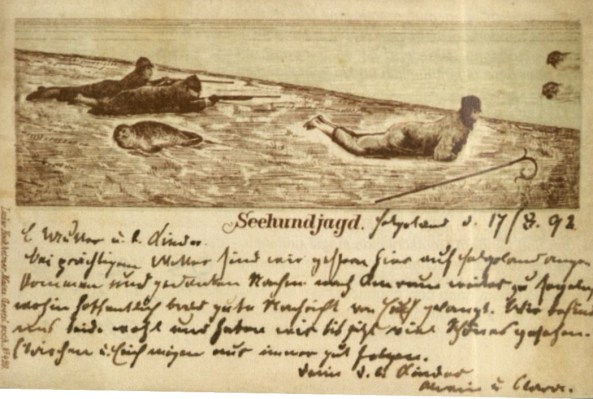 Seehundjagd. Helgoland d. 17/8. 92
L. Mutter u. l. Kinder.
bei prächtigem Wetter sind wir gestern hier auf Helgoland ange
kommen und gedenken Nachm nach Amrum weiter zu segeln
wohin hoffentlich bald gute Nachricht von Euch gelangt. Wir befind
uns beide wohl und haben wir bis jetzt viel Schönes gesehen.
immer gut gehen.
Kinder
u Clara.